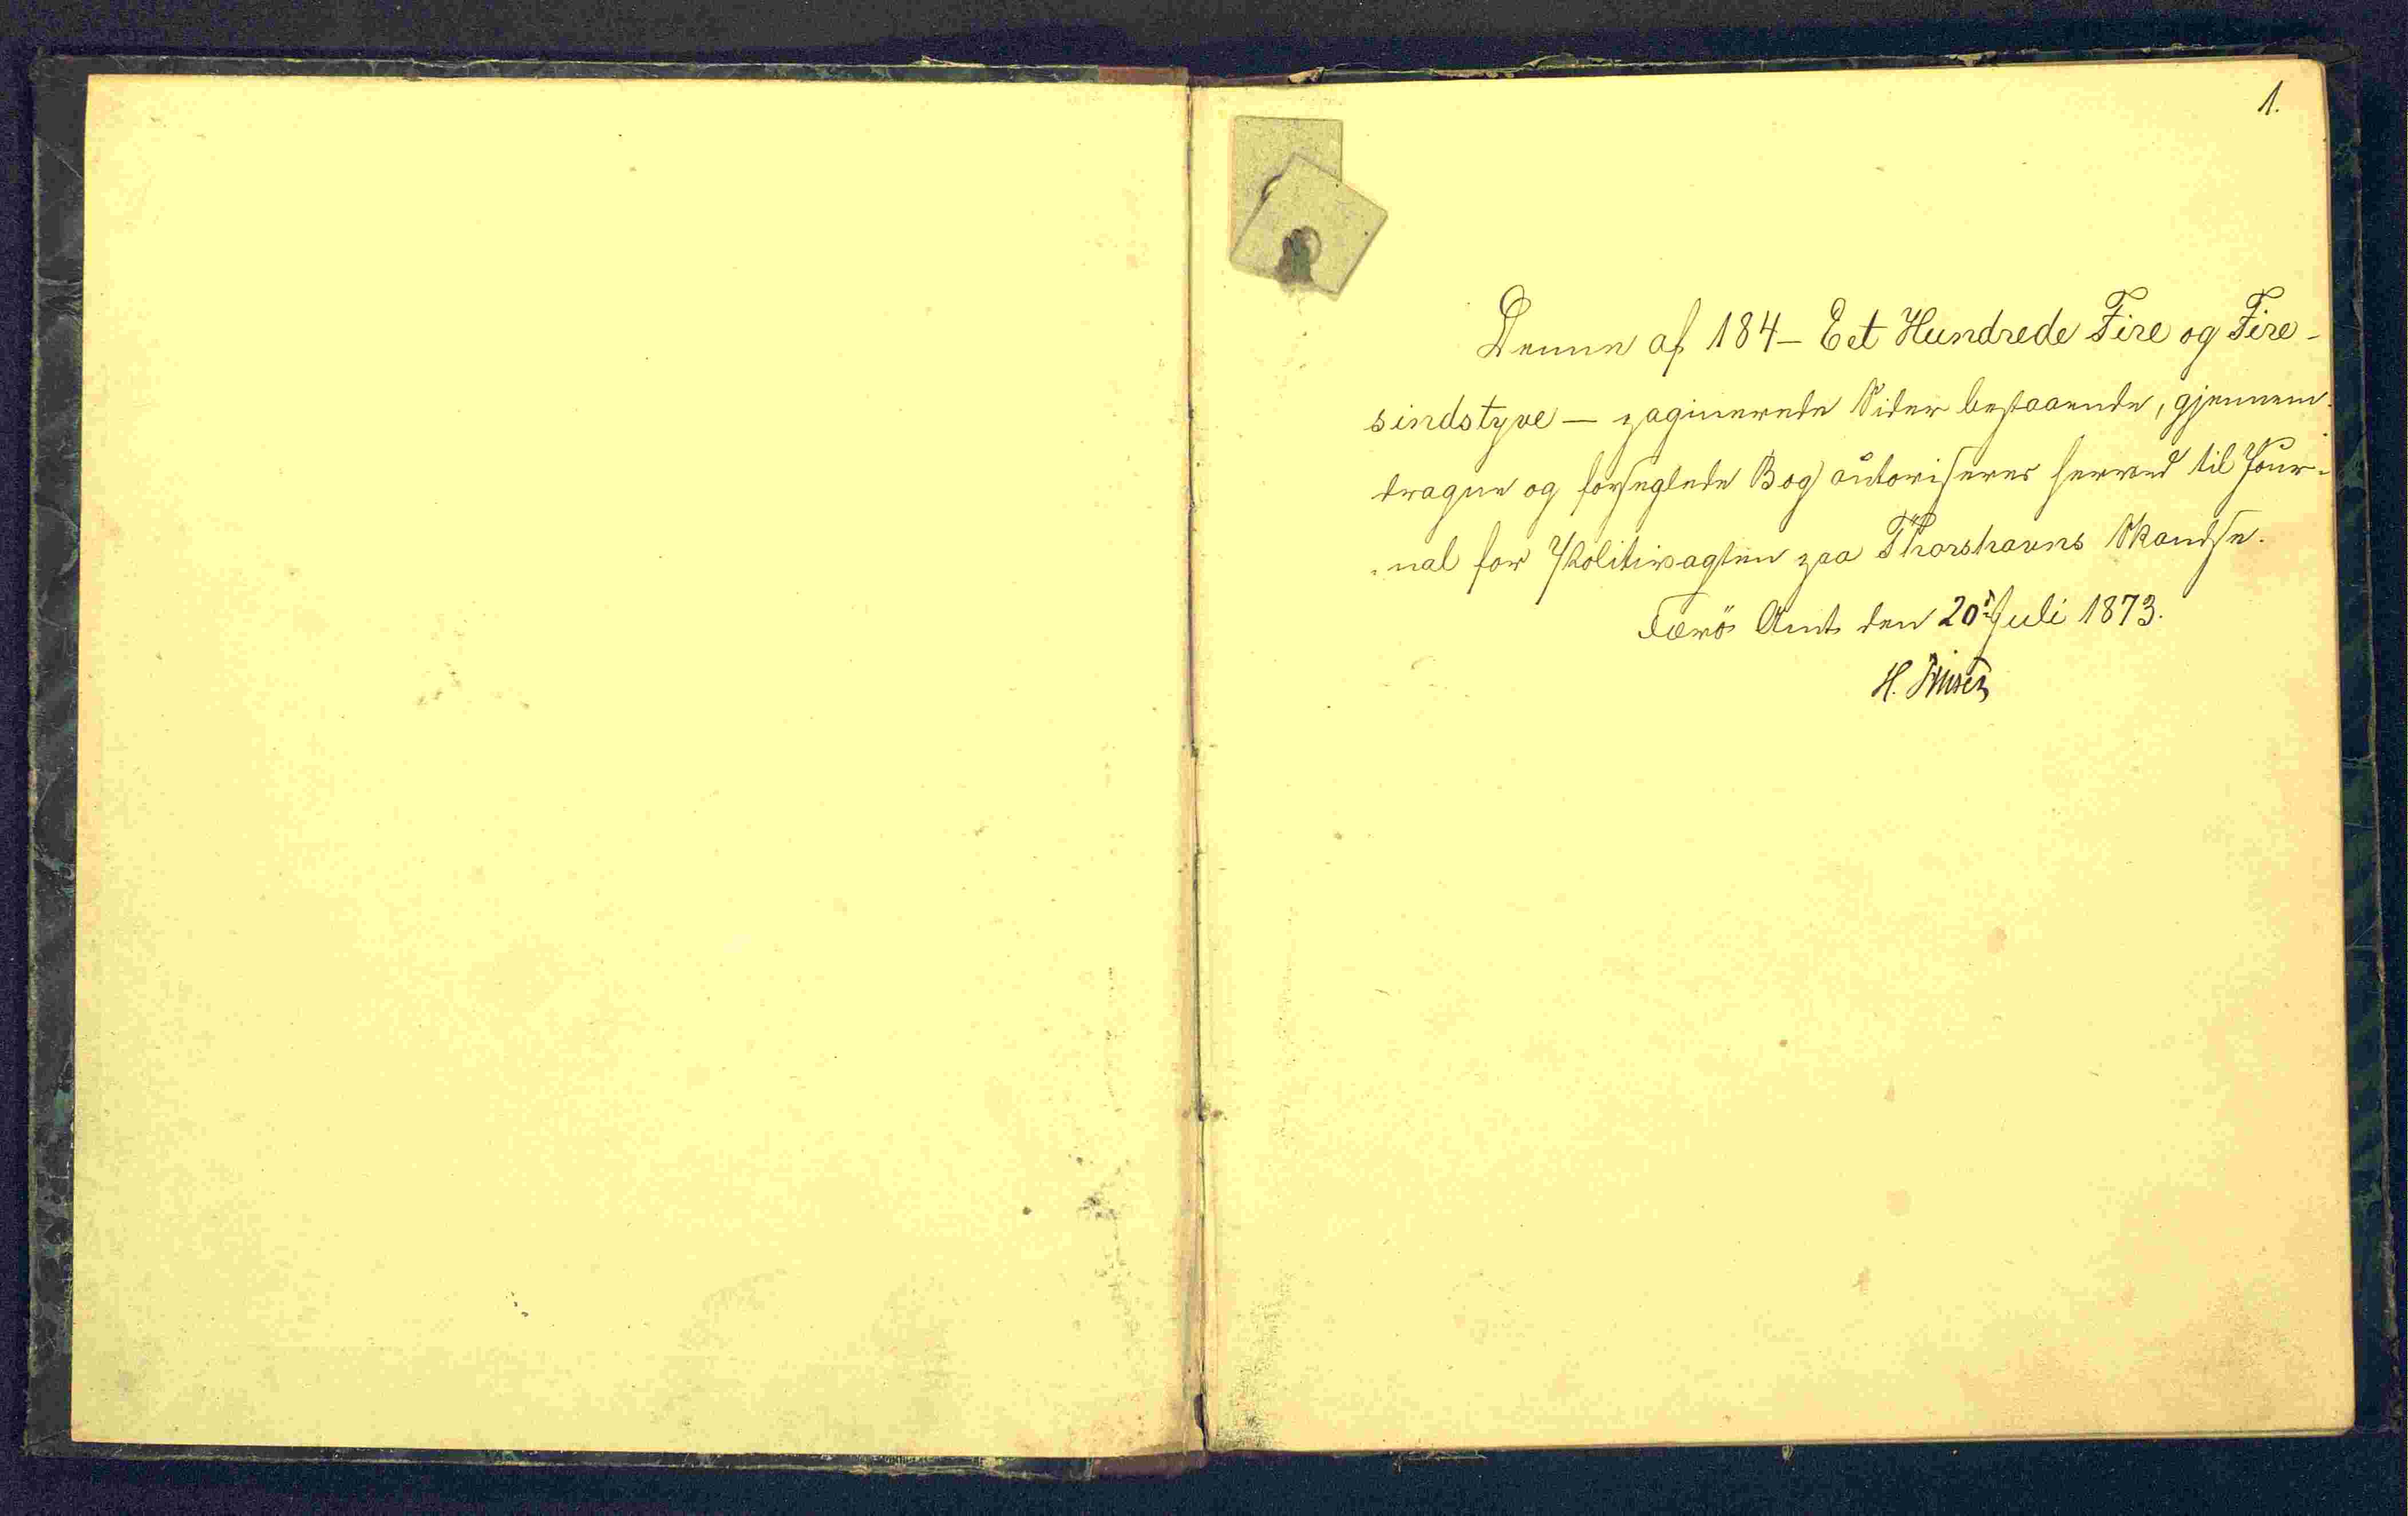 1.
Denne af 184 – Eet Hundrede Fire og Fire-
sindstyve — paginerede Sider bestaaende, gjennem-
dragne og forseglede Bog autoriseres herved til Jour-
nal for Politivagten paa Thorshavns Skandse.
Færö Amt den 20. Juli 1873.
H.